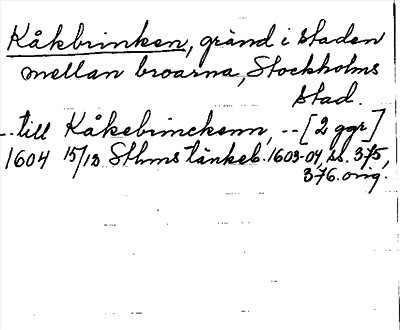 Kåkbrinken, gränd i staden
mellan broarna, Stockholms
stad.
-- till Kåkebrinckenn, -- [2 ggr]
1604 15/12 Sthms tänkeb. 1603-04, ss. 375,
376. orig.